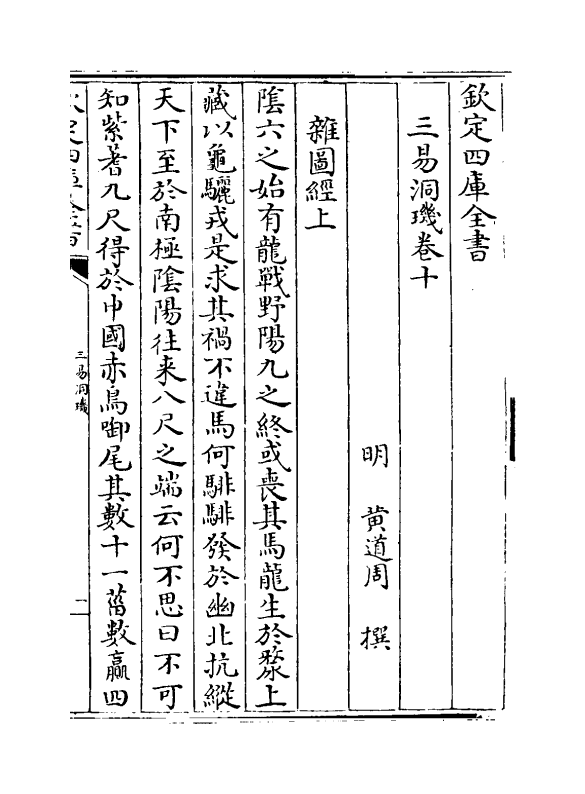 欽定四庫全書
三易洞璣卷十
明 黃道周 撰
雜圖經上
陰六之始有龍戰野陽九之終或喪其馬龍生於漦上
藏以龜驪戎是求其禍不違馬何騑騑發於幽北抗縱
天下至於南極陰陽往来八尺之端云何不思曰不可
知紫蓍九尺得於中國赤鳥啣尾其數十一菑數贏四
三易洞璣